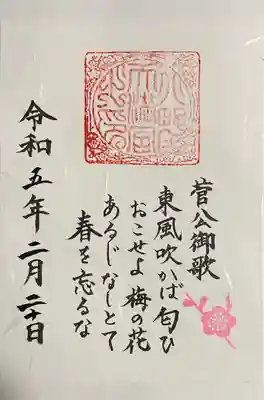 菅公御歌
東風吹かば匂ひ
おこせよ 梅の花
あるじなしとて
春を忘るな
令和五年二月二十日